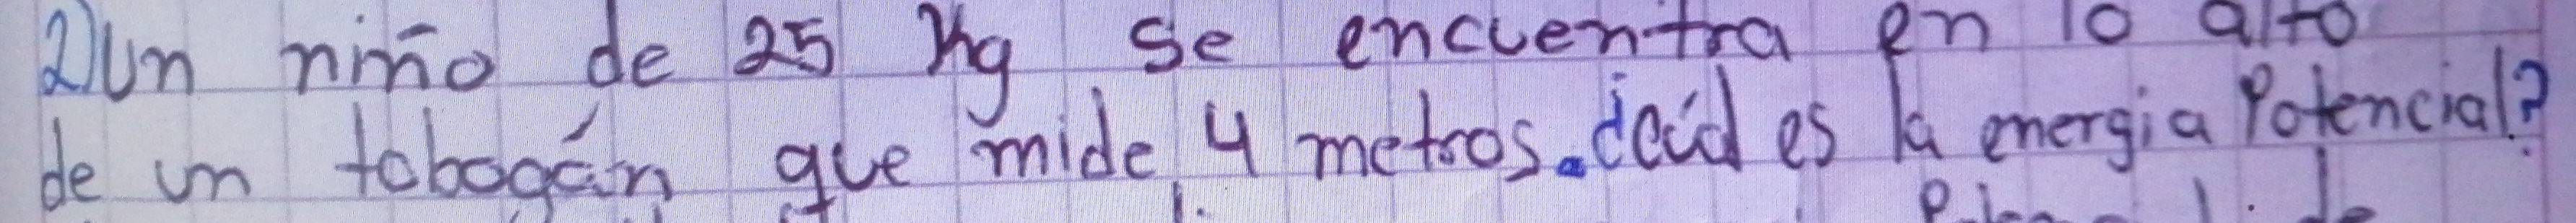 2) Un niño de 25 Kg se encuentra en lo alto
de un tobogán que mide 4 metros. ¿Cuál es la energia Potencial?